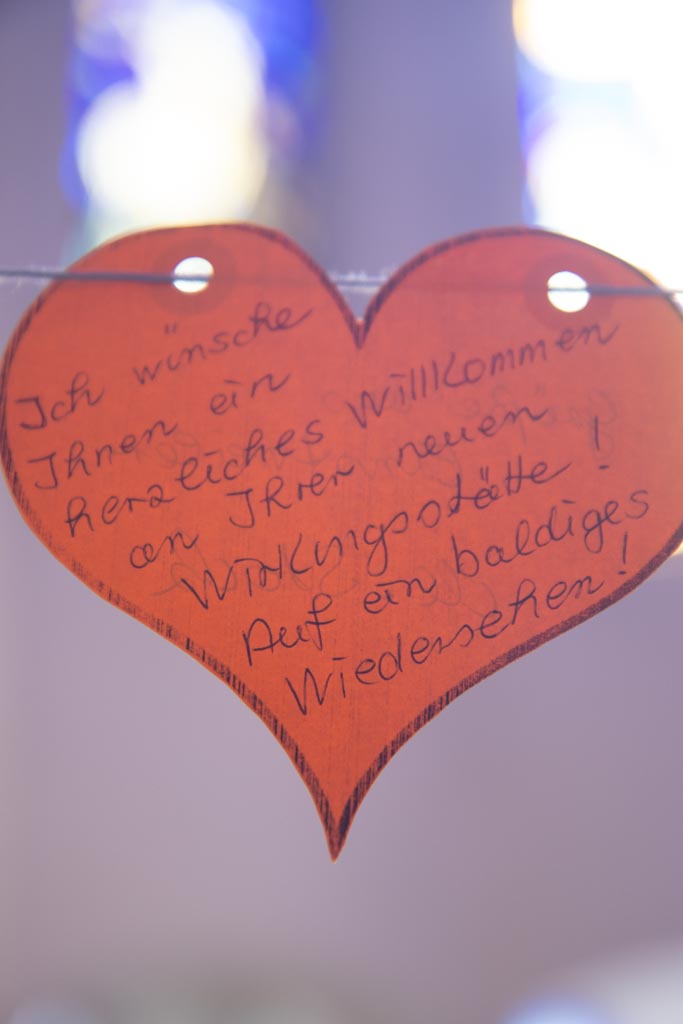 Ich wünsche
Ihnen ein
herzliches Willkommen
an Ihrer neuen
Wirkungsstätte!
Auf ein baldiges
Wiedersehen!